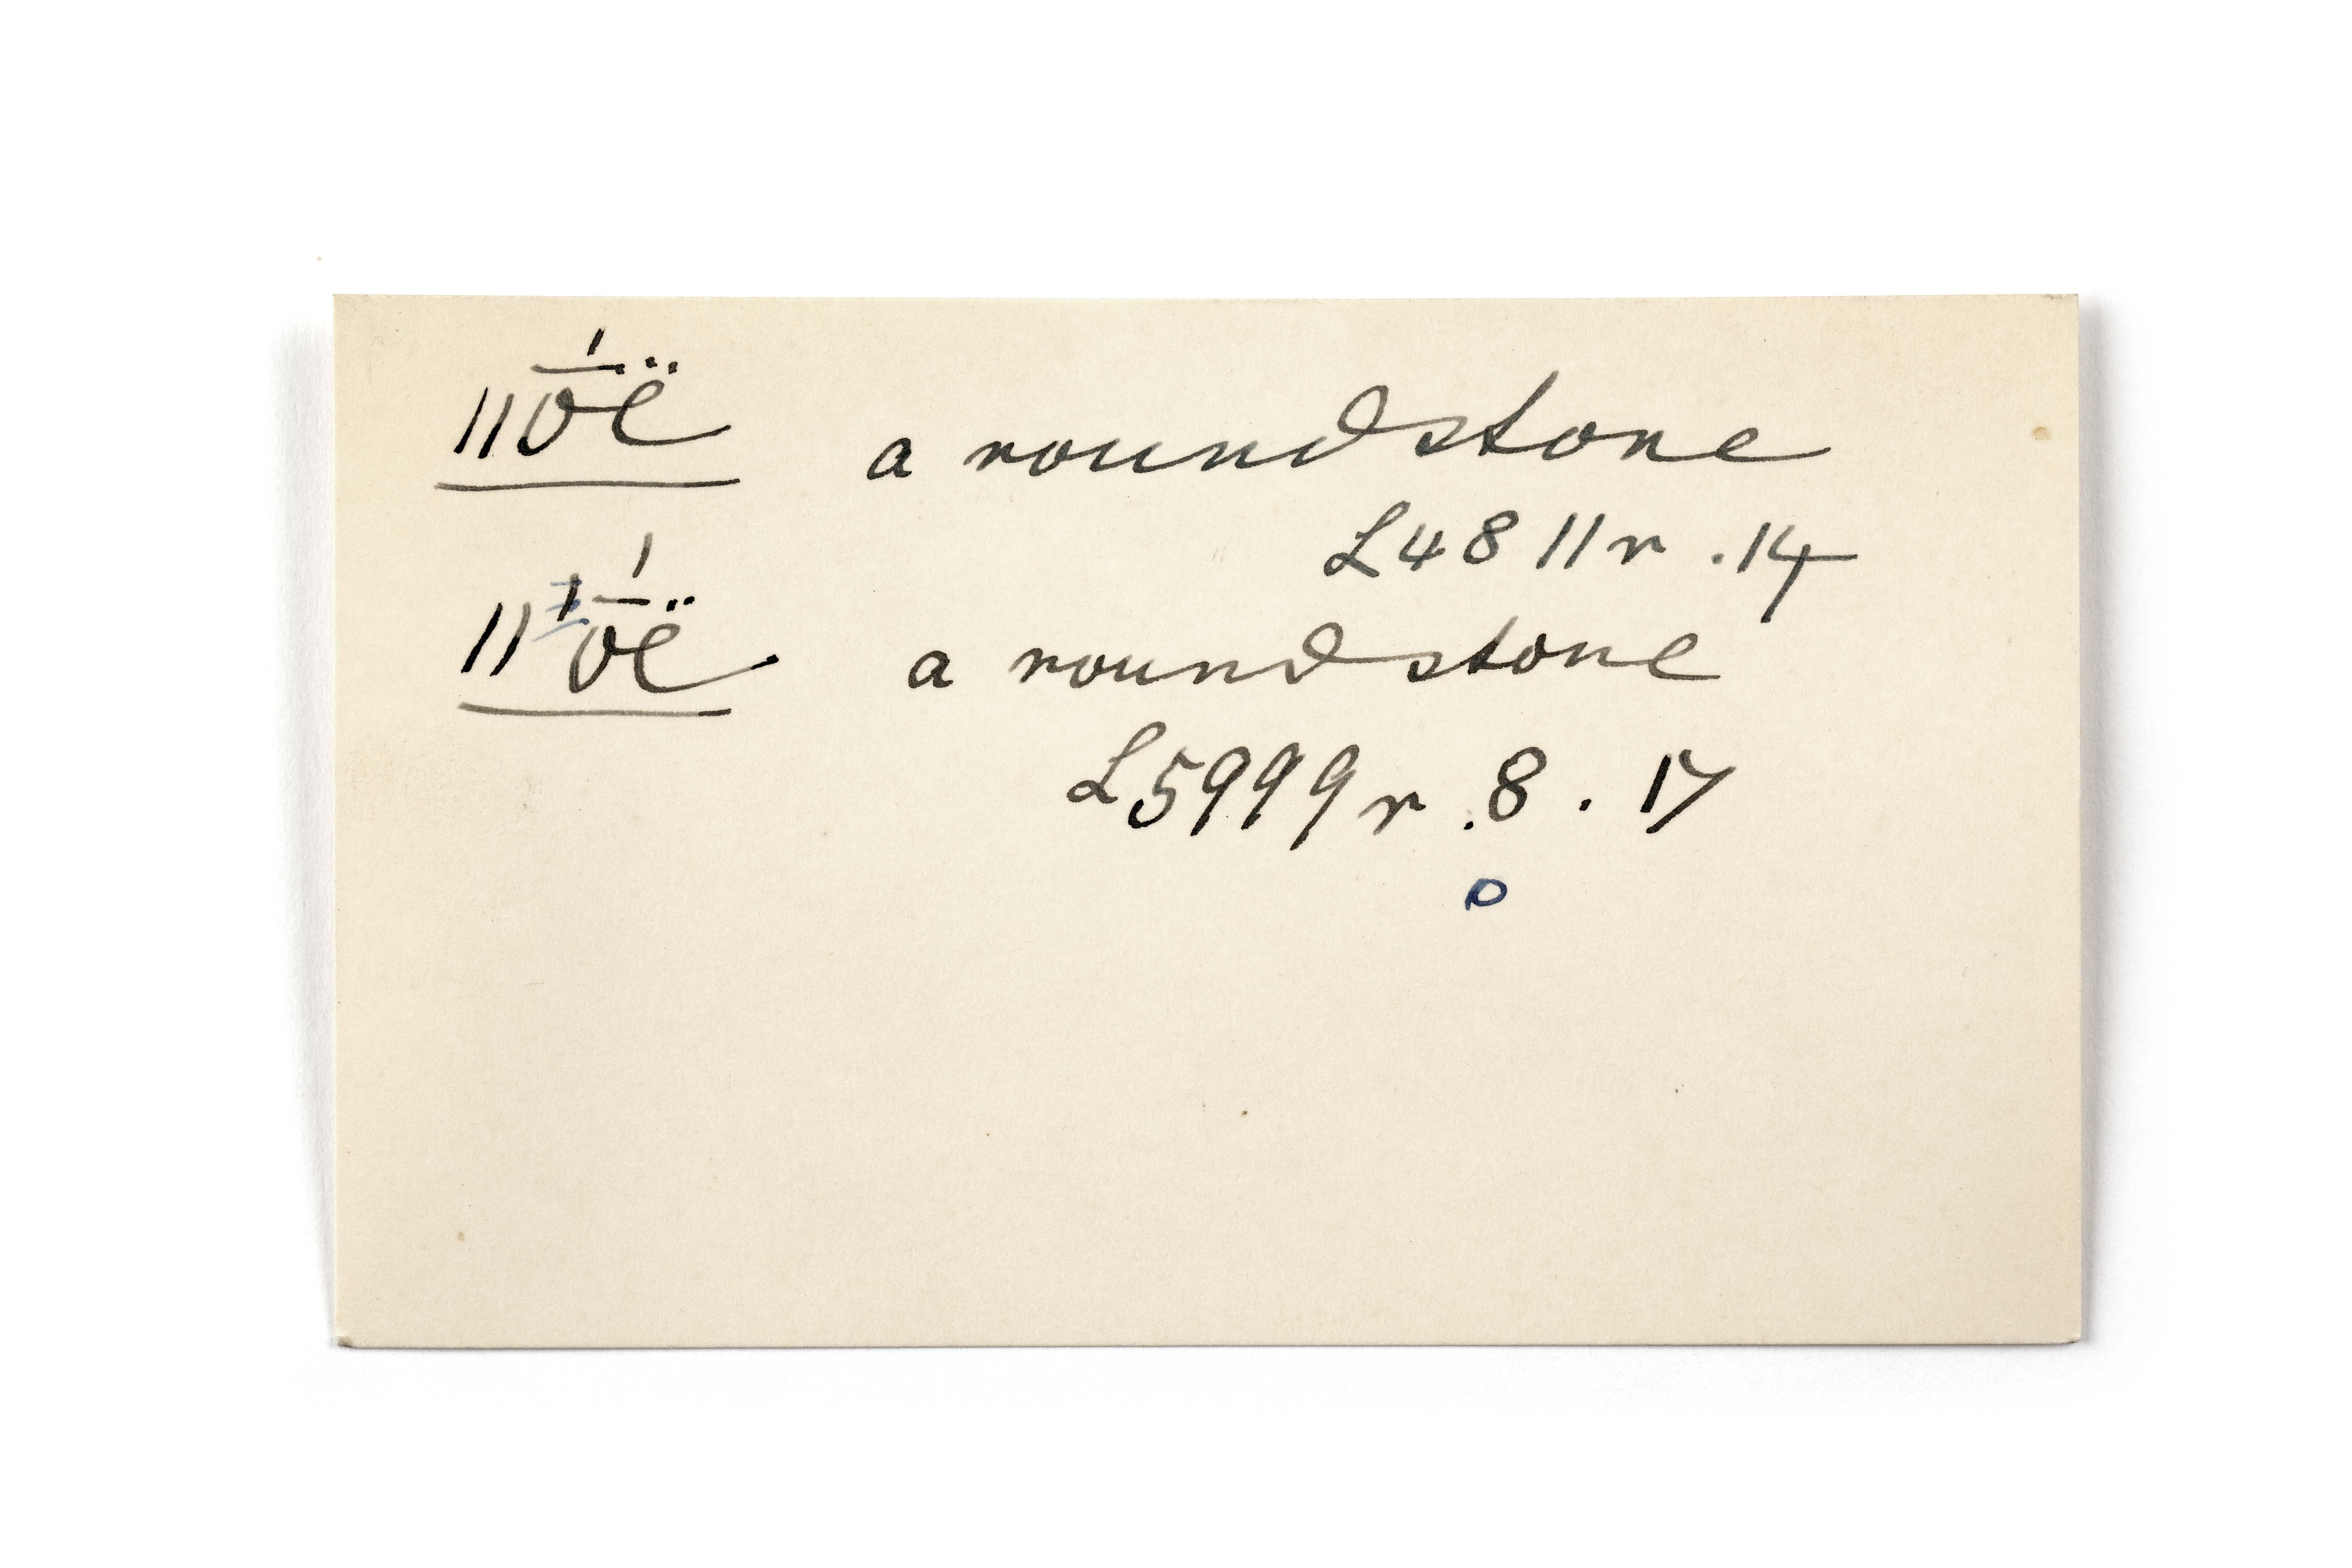 ǁṓë a round stone
L4811r .14
ǁˀṓë a round stone
L5999r .8 . 17
o